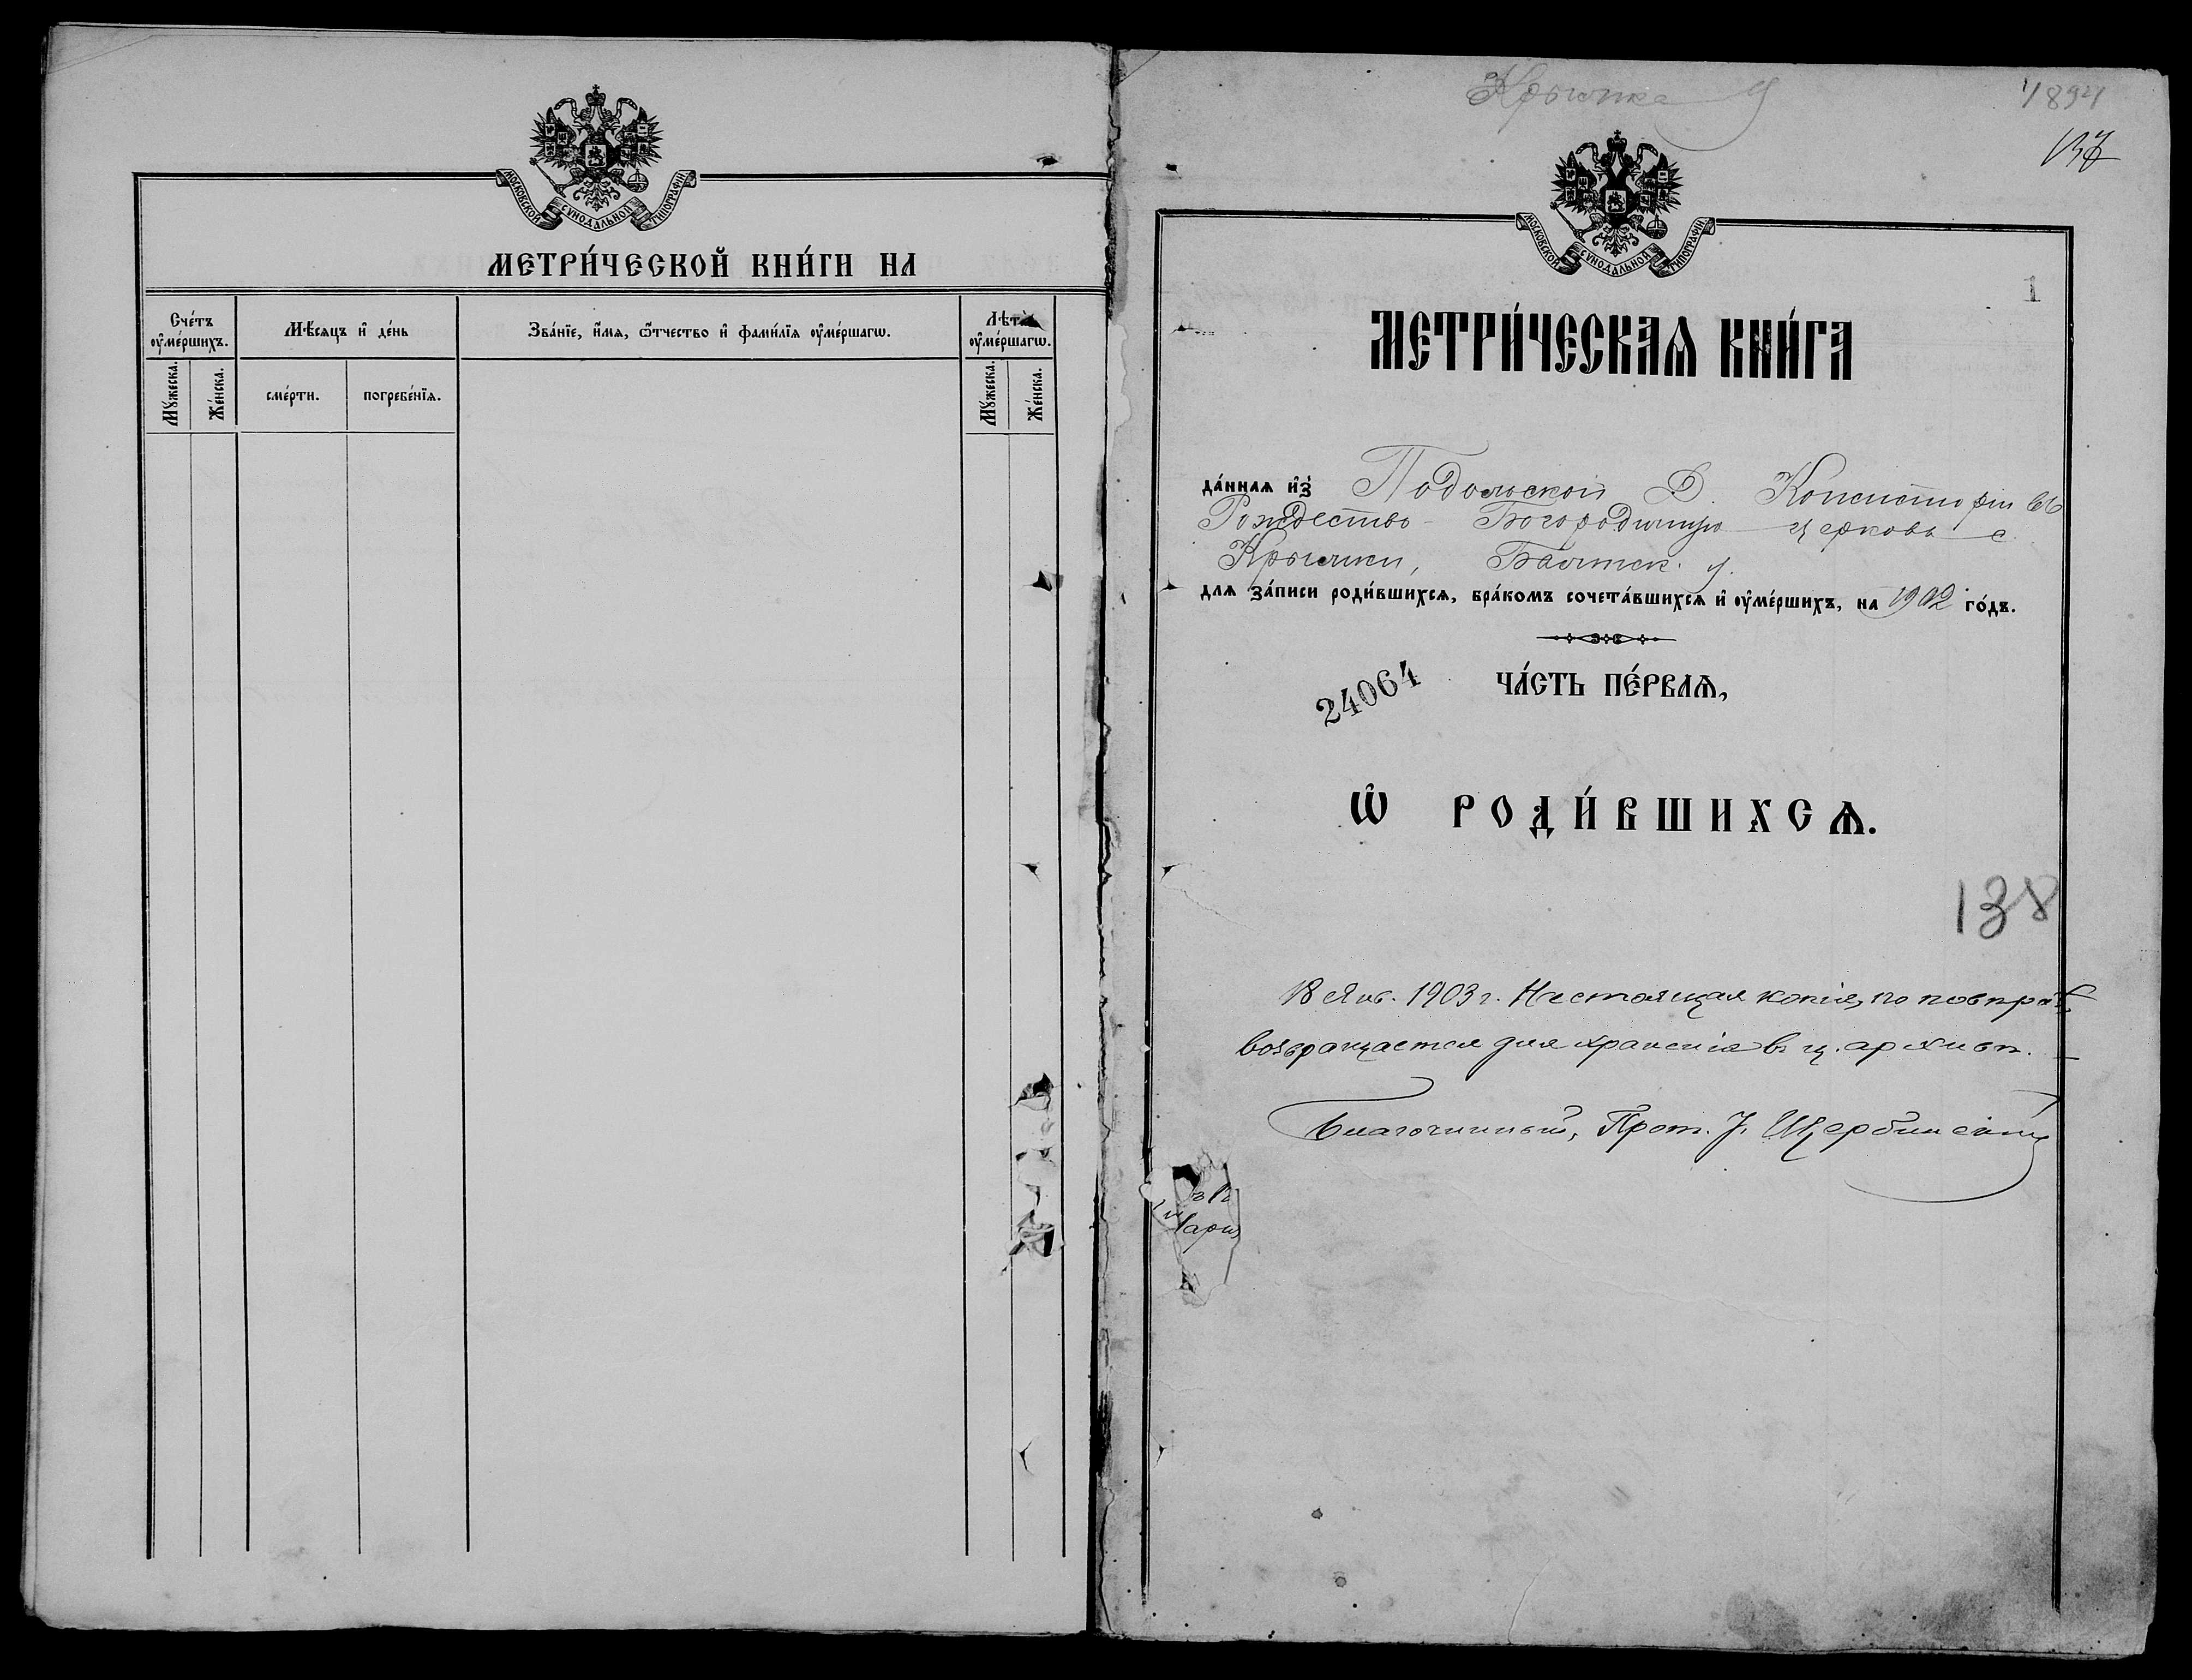 МОСКОВСКОЙ СѴНОДАЛЬНОЙ ТИПОГРАФІИ
МЕТРИ́ЧЕСКОЙ КНИ́ГИ НА
Сче́тъ ᲂу҆ме́ршихъ.
Мѣ́сяцъ и҆ де́нь
Зва́нїе, и҆́мя, ѻ҆́тчество и҆ фами́лїя ᲂу҆ме́ршагѡ.
ᲂу҆ме́ршагѡ.
Му́жеска.
Же́нска.
сме́рти.
погребе́нїя.
Му́жеска.
Же́нска.
Крычка
1894
МОСКОВСКОЙ СѴНОДАЛЬНОЙ ТИПОГРАФІИ
1
МЕТРИ́ЧЕСКАѦ КНИ́ГА
да́нная и҆з̾ Подольской Д. Консисторіи въ
Рождество-Богородичную церковь с.
Крычки, Балтск. у.
для за́писи роди́вшихся, бра́комъ сочета́вшихся и҆ ᲂу҆ме́ршихъ, на 1902 го́дъ.
24064
ЧА́СТЬ ПЕ́РВАѦ,
Ѡ҆ РОДИ́ВШИХСѦ.
138
18 Янв. 1903 г. Настоящая копія, по
возвращается для храненія въ ц. архивъ.
Благочинный, Прот. І. Щербинскій